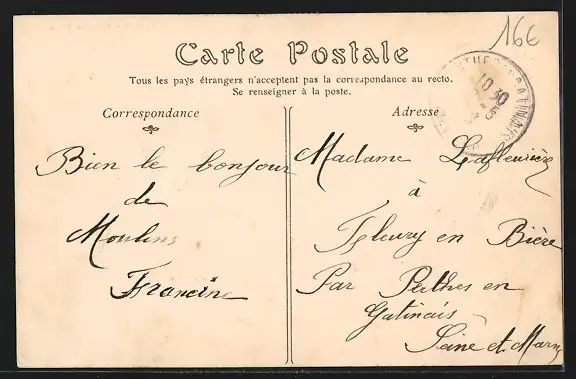 16€
Carte Postale
Tous les pays étrangers n'acceptent pas la correspondance au recto.
Se renseigner à la poste.
Correspondance
Bien le bonjour
de
Moulins
Francine
Adresse
Madame Lafleurière
à
Fleury en Bière
Par Perthes en
Gatinais
Seine et Marne